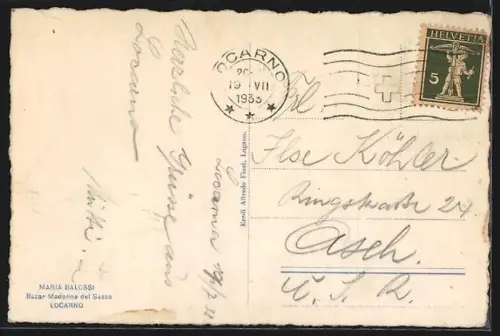 Herzliche Grüsse aus
Locarno
Locarno 19/7 33
MARIA BALOSSI
Bazar Madonna del Sasso
LOCARNO
Eredi Alfredo Finzi, Lugano.
LOCARNO
19 VII
1933
HELVETIA
5
Frl.
Ilse Köhler
Ringstrasse 24.
Asch.
Č. S. R.